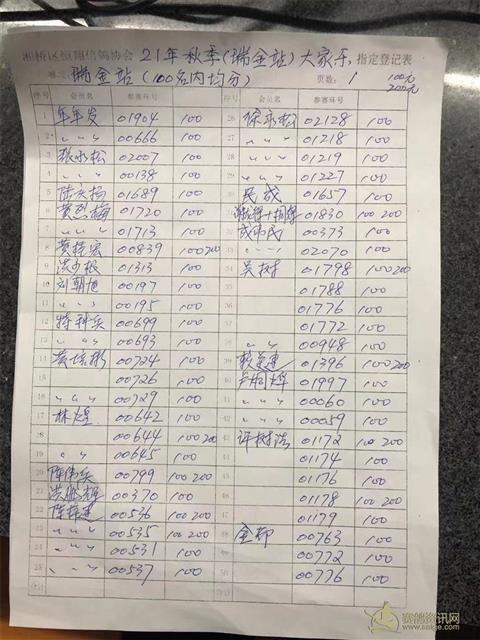 湘桥区恒翔信鸽协会 21年秋季(瑞金站)大家乐 指定登记表
瑞金站(100名内均分) 页数: 1 100元 200元
序号 会员名 参赛环号 序号 会员名 参赛环号
1 年年发 01904 100 26 徐永松 02128 100
2 〃 〃 〃 00666 100 27 〃 〃 〃 01218 100
3 张永松 02007 100 28 〃 〃 〃 01219 100
4 〃 〃 〃 00138 100 29 〃 〃 〃 01227 100
5 陆文扬 01689 100 30 民成 01657 100
6 01720 100 01830 100 200
7 〃 〃 01713 100 00373 100
8 00839 100 200 33 02070 100
9 洪少根 01313 100 34 吴树 01798 100 200
10 刘朝旭 00197 100 01788 100
11 〃 〃 〃 00195 100 01776 100
12 特种兵 00699 100 01772 100
13 〃 〃 〃 00693 100 〃 〃 00948 100
14 00724 100 39 01396 100 200
15 00726 100 01997 100
16 〃 〃 〃 00729 100 41 〃 〃 〃 00060 100
17 林煌 00642 100 42 〃 〃 〃 00059 100
18 00644 100 200 43 01172 100 200
19 〃 〃 00645 100 44 01174 100
20 陈伟兵 00799 100 200 01176 100
21 洪鹏辉 00370 100 01178 100 200
22 00536 100 200 01179 100
23 〃 〃 〃 00535 100 200 00763 100
24 〃 〃 〃 00531 100 00772 100
25 〃 〃 〃 00537 100 00776 100
合计 合计
赛鸽资讯网
www.saige.com